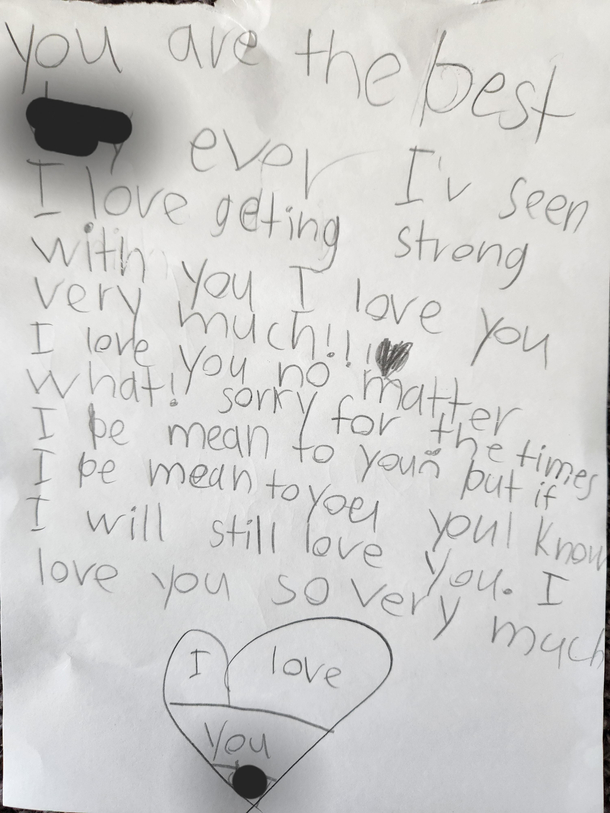 you are the best
ever I'v seen
I love geting strong
with you I love you
very much!!!
I love you no matter
what! sorry for the times
I be mean to you but if
I be mean to you you'l know
I will still love you. I
love you so very much
I love
You